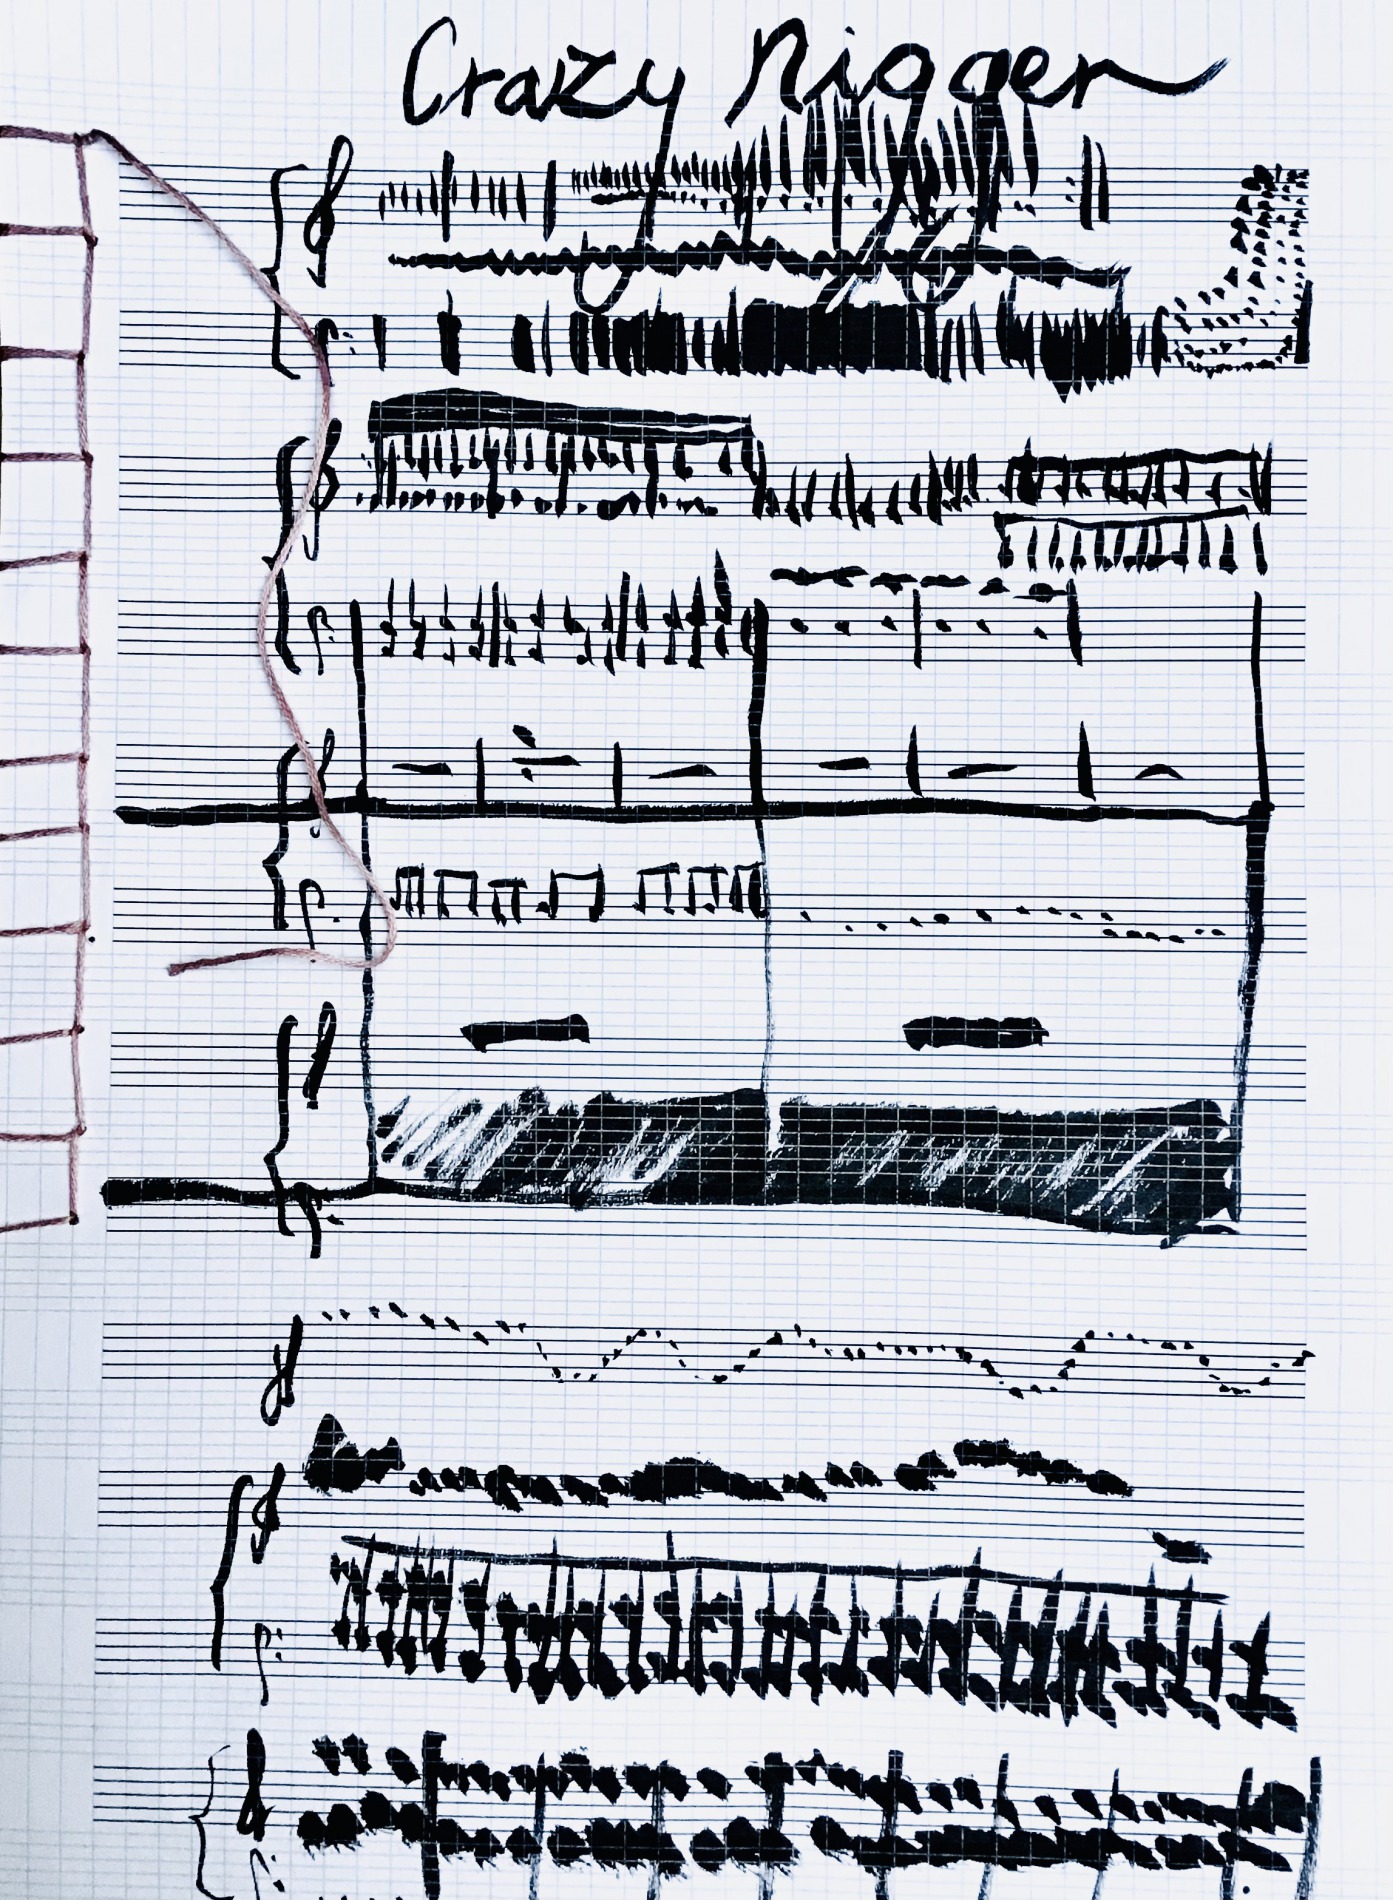 Crazy Nigger